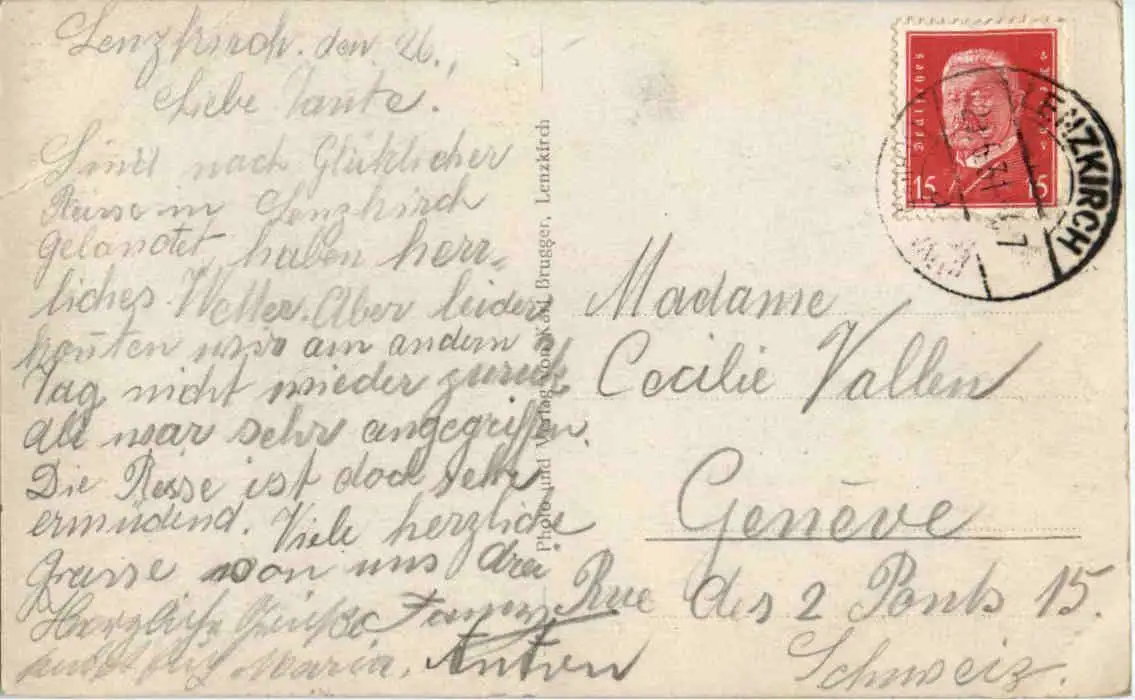 Lenzkirch. den 26.,
Liebe Tante.
Sind nach Glücklicher
Reise in Lenzkirch
gelandet, haben herr-
liches Wetter. Aber leider
konten wir am andern
Tag nicht wieder zurück
all war sehr angegriffen.
Die Reise ist doch sehr
ermüdend. Viele herzliche
Grüsse von uns drei
Herzliche Grüße Fanny
Maria. Anton
Photo und Verlag von Karl Brugger, Lenzkirch
Deutsches Reich
15 15
LENZKIRCH
Madame
Cecilie Vallen
Genève
Rue des 2 Ponts 15.
Schweiz.